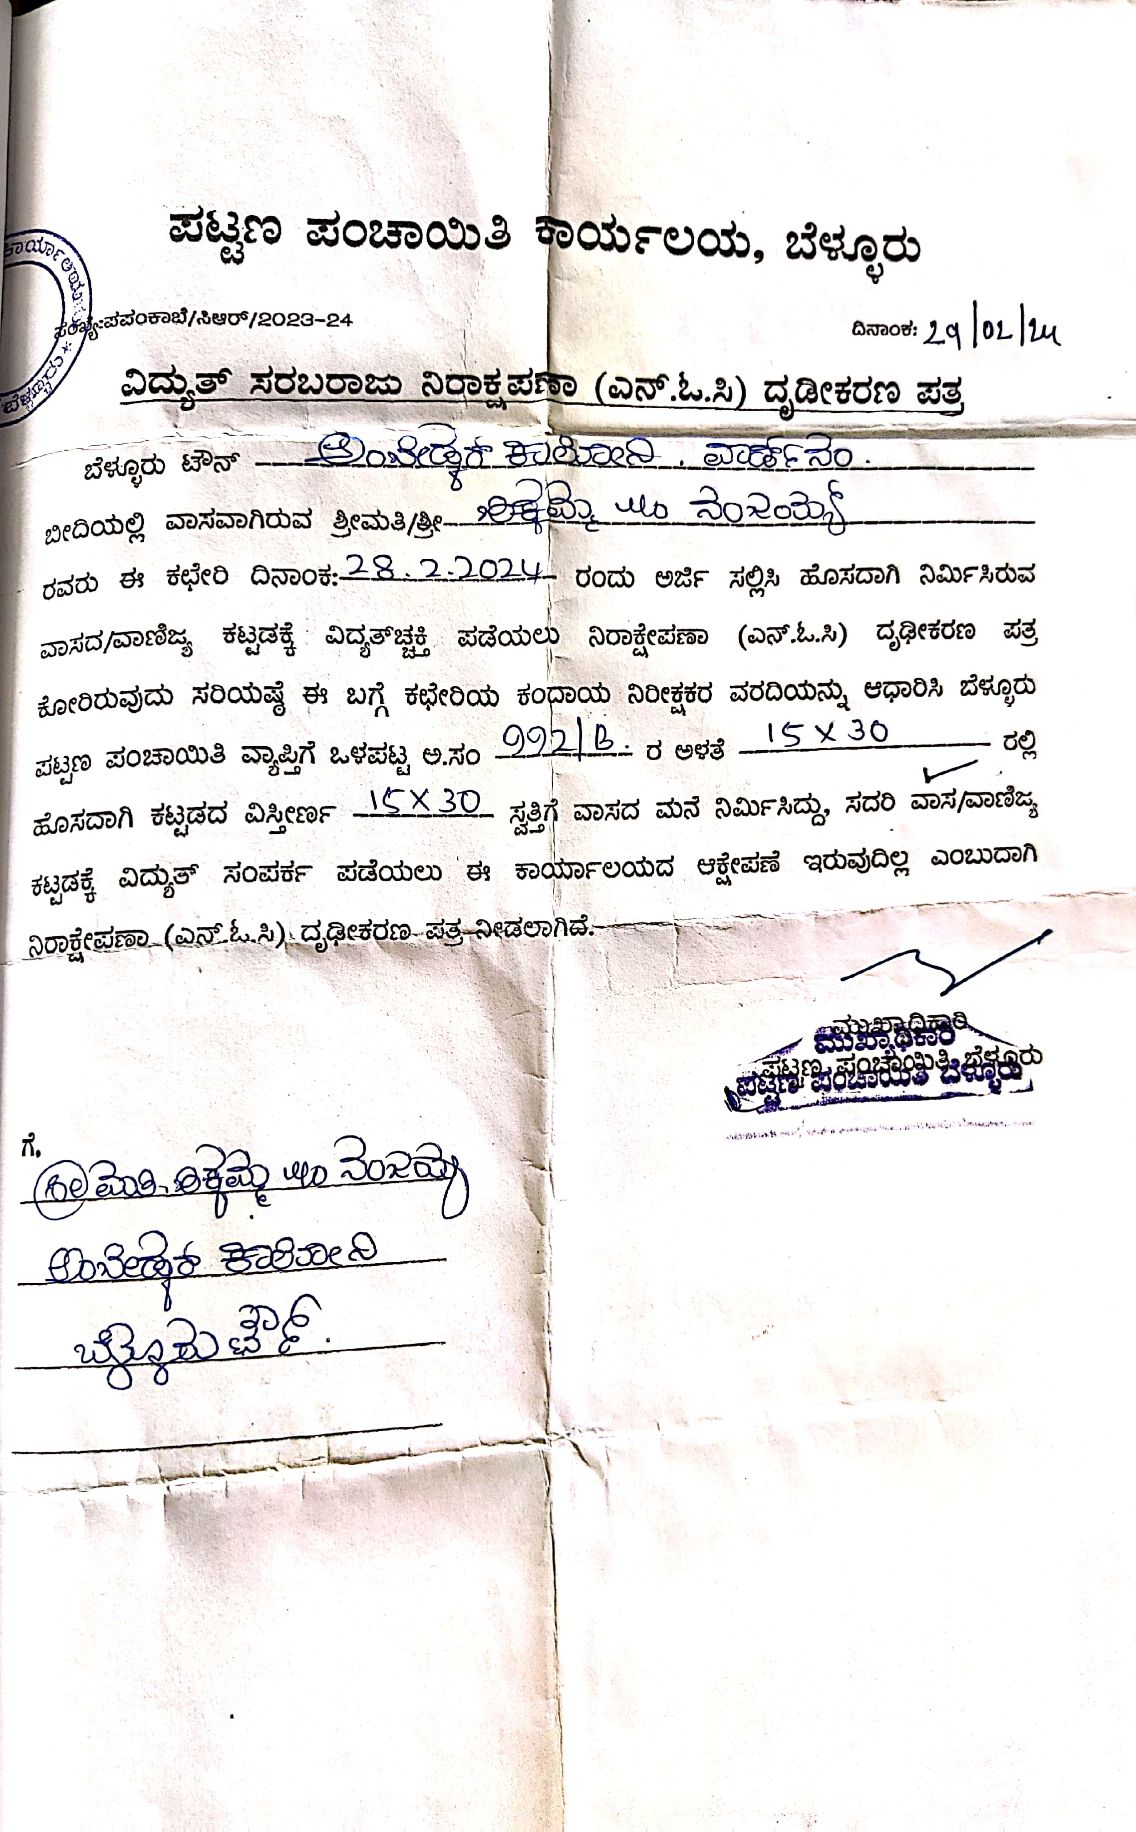 ಪಟ್ಟಣ ಪಂಚಾಯಿತಿ ಕಾರ್ಯಲಯ, ಬೆಳ್ಳೂರು
ಕಾರ್ಯಾಲಯ * ಬೆಳ್ಳೂರು
ಸಂಖ್ಯೆ:ಪಪಂಕಾಬೆ/ಸಿಆರ್/2023-24
ದಿನಾಂಕ: 29/02/24
ವಿದ್ಯುತ್ ಸರಬರಾಜು ನಿರಾಕ್ಷಪಣಾ (ಎನ್.ಓ.ಸಿ) ದೃಡೀಕರಣ ಪತ್ರ
ಬೆಳ್ಳೂರು ಟೌನ್ ಅಂಬೇಡ್ಕರ್ ಕಾಲೋನಿ . ವಾರ್ಡ್ ನಂ.
ಬೀದಿಯಲ್ಲಿ ವಾಸವಾಗಿರುವ ಶ್ರೀಮತಿ/ಶ್ರೀ ನಂಜಯ್ಯ
ರವರು ಈ ಕಛೇರಿ ದಿನಾಂಕ: 28.2.2024 ರಂದು ಅರ್ಜಿ ಸಲ್ಲಿಸಿ ಹೊಸದಾಗಿ ನಿರ್ಮಿಸಿರುವ
ವಾಸದ/ವಾಣಿಜ್ಯ ಕಟ್ಟಡಕ್ಕೆ ವಿದ್ಯತ್‌ಚ್ಛಕ್ತಿ ಪಡೆಯಲು ನಿರಾಕ್ಷೇಪಣಾ (ಎನ್.ಓ.ಸಿ) ದೃಢೀಕರಣ ಪತ್ರ
ಕೋರಿರುವುದು ಸರಿಯಷ್ಟೆ ಈ ಬಗ್ಗೆ ಕಛೇರಿಯ ಕಂದಾಯ ನಿರೀಕ್ಷಕರ ವರದಿಯನ್ನು ಆಧಾರಿಸಿ ಬೆಳ್ಳೂರು
ಪಟ್ಟಣ ಪಂಚಾಯಿತಿ ವ್ಯಾಪ್ತಿಗೆ ಒಳಪಟ್ಟ ಅ.ಸಂ 992/B. ರ ಅಳತೆ 15 X 30 ರಲ್ಲಿ
ಹೊಸದಾಗಿ ಕಟ್ಟಡದ ವಿಸ್ತೀರ್ಣ 15X30 ಸ್ವತ್ತಿಗೆ ವಾಸದ ಮನೆ ನಿರ್ಮಿಸಿದ್ದು, ಸದರಿ ವಾಸ/ವಾಣಿಜ್ಯ
ಕಟ್ಟಡಕ್ಕೆ ವಿದ್ಯುತ್ ಸಂಪರ್ಕ ಪಡೆಯಲು ಈ ಕಾರ್ಯಾಲಯದ ಆಕ್ಷೇಪಣೆ ಇರುವುದಿಲ್ಲ ಎಂಬುದಾಗಿ
ನಿರಾಕ್ಷೇಪಣಾ (ಎನ್.ಓ.ಸಿ) ದೃಢೀಕರಣ ಪತ್ರ ನೀಡಲಾಗಿದೆ.
ಮುಖ್ಯಾಧಿಕಾರಿ
ಮುಖ್ಯಾಧಿಕಾರಿ
ಪಟ್ಟಣ ಪಂಚಾಯಿತಿ, ಬೆಳ್ಳೂರು
ಪಟ್ಟಣ ಪಂಚಾಯಿತಿ ಬೆಳ್ಳೂರು
ಗೆ,
ಶ್ರೀಮತಿ. ನಂಜಯ್ಯ
ಅಂಬೇಡ್ಕರ್ ಕಾಲೋನಿ
ಬೆಳ್ಳೂರು ಟೌನ್.